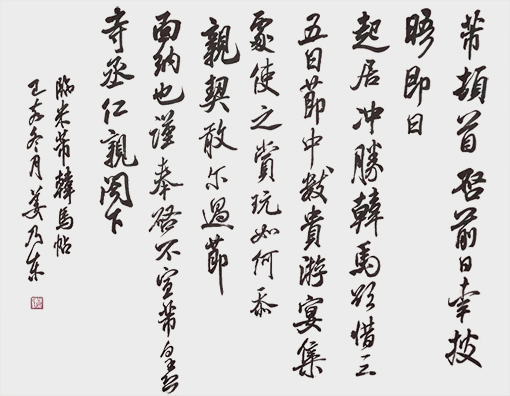 芾頓首啓前日幸披
晤即日
起居冲勝韓馬欲借三
五日節中數貴游宴集
處使之賞玩如何忝
親契敢尔過節
面納也謹奉啓不宣芾皇恐
寺丞仁親閣下
臨米芾韓馬帖
己亥冬月姜乃東